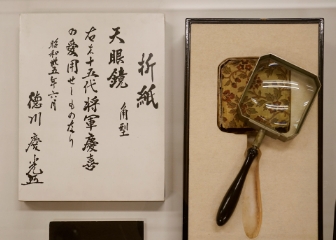 折紙
天眼鏡 角型
右は十五代将軍慶喜
の愛用せしものなり
昭和廿五年六月
徳川慶光